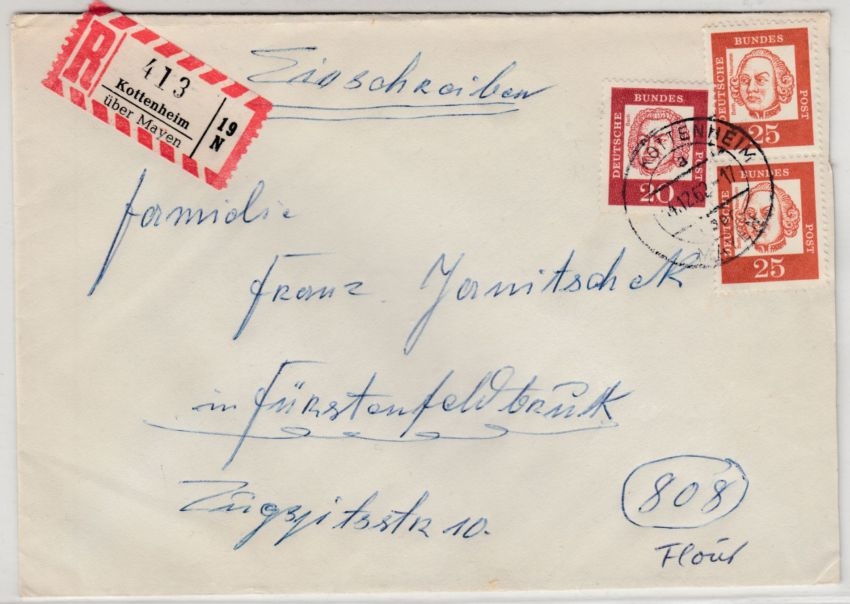 R
413
Kottenheim
über Mayen
19
N
Einschreiben
DEUTSCHE BUNDES POST 25
DEUTSCHE BUNDES POST 20
KOTTENHEIM
DEUTSCHE BUNDES POST 25
Familie
Franz Janitschek
in Fürstenfeldbruck
Zugspitsstr 10.
808